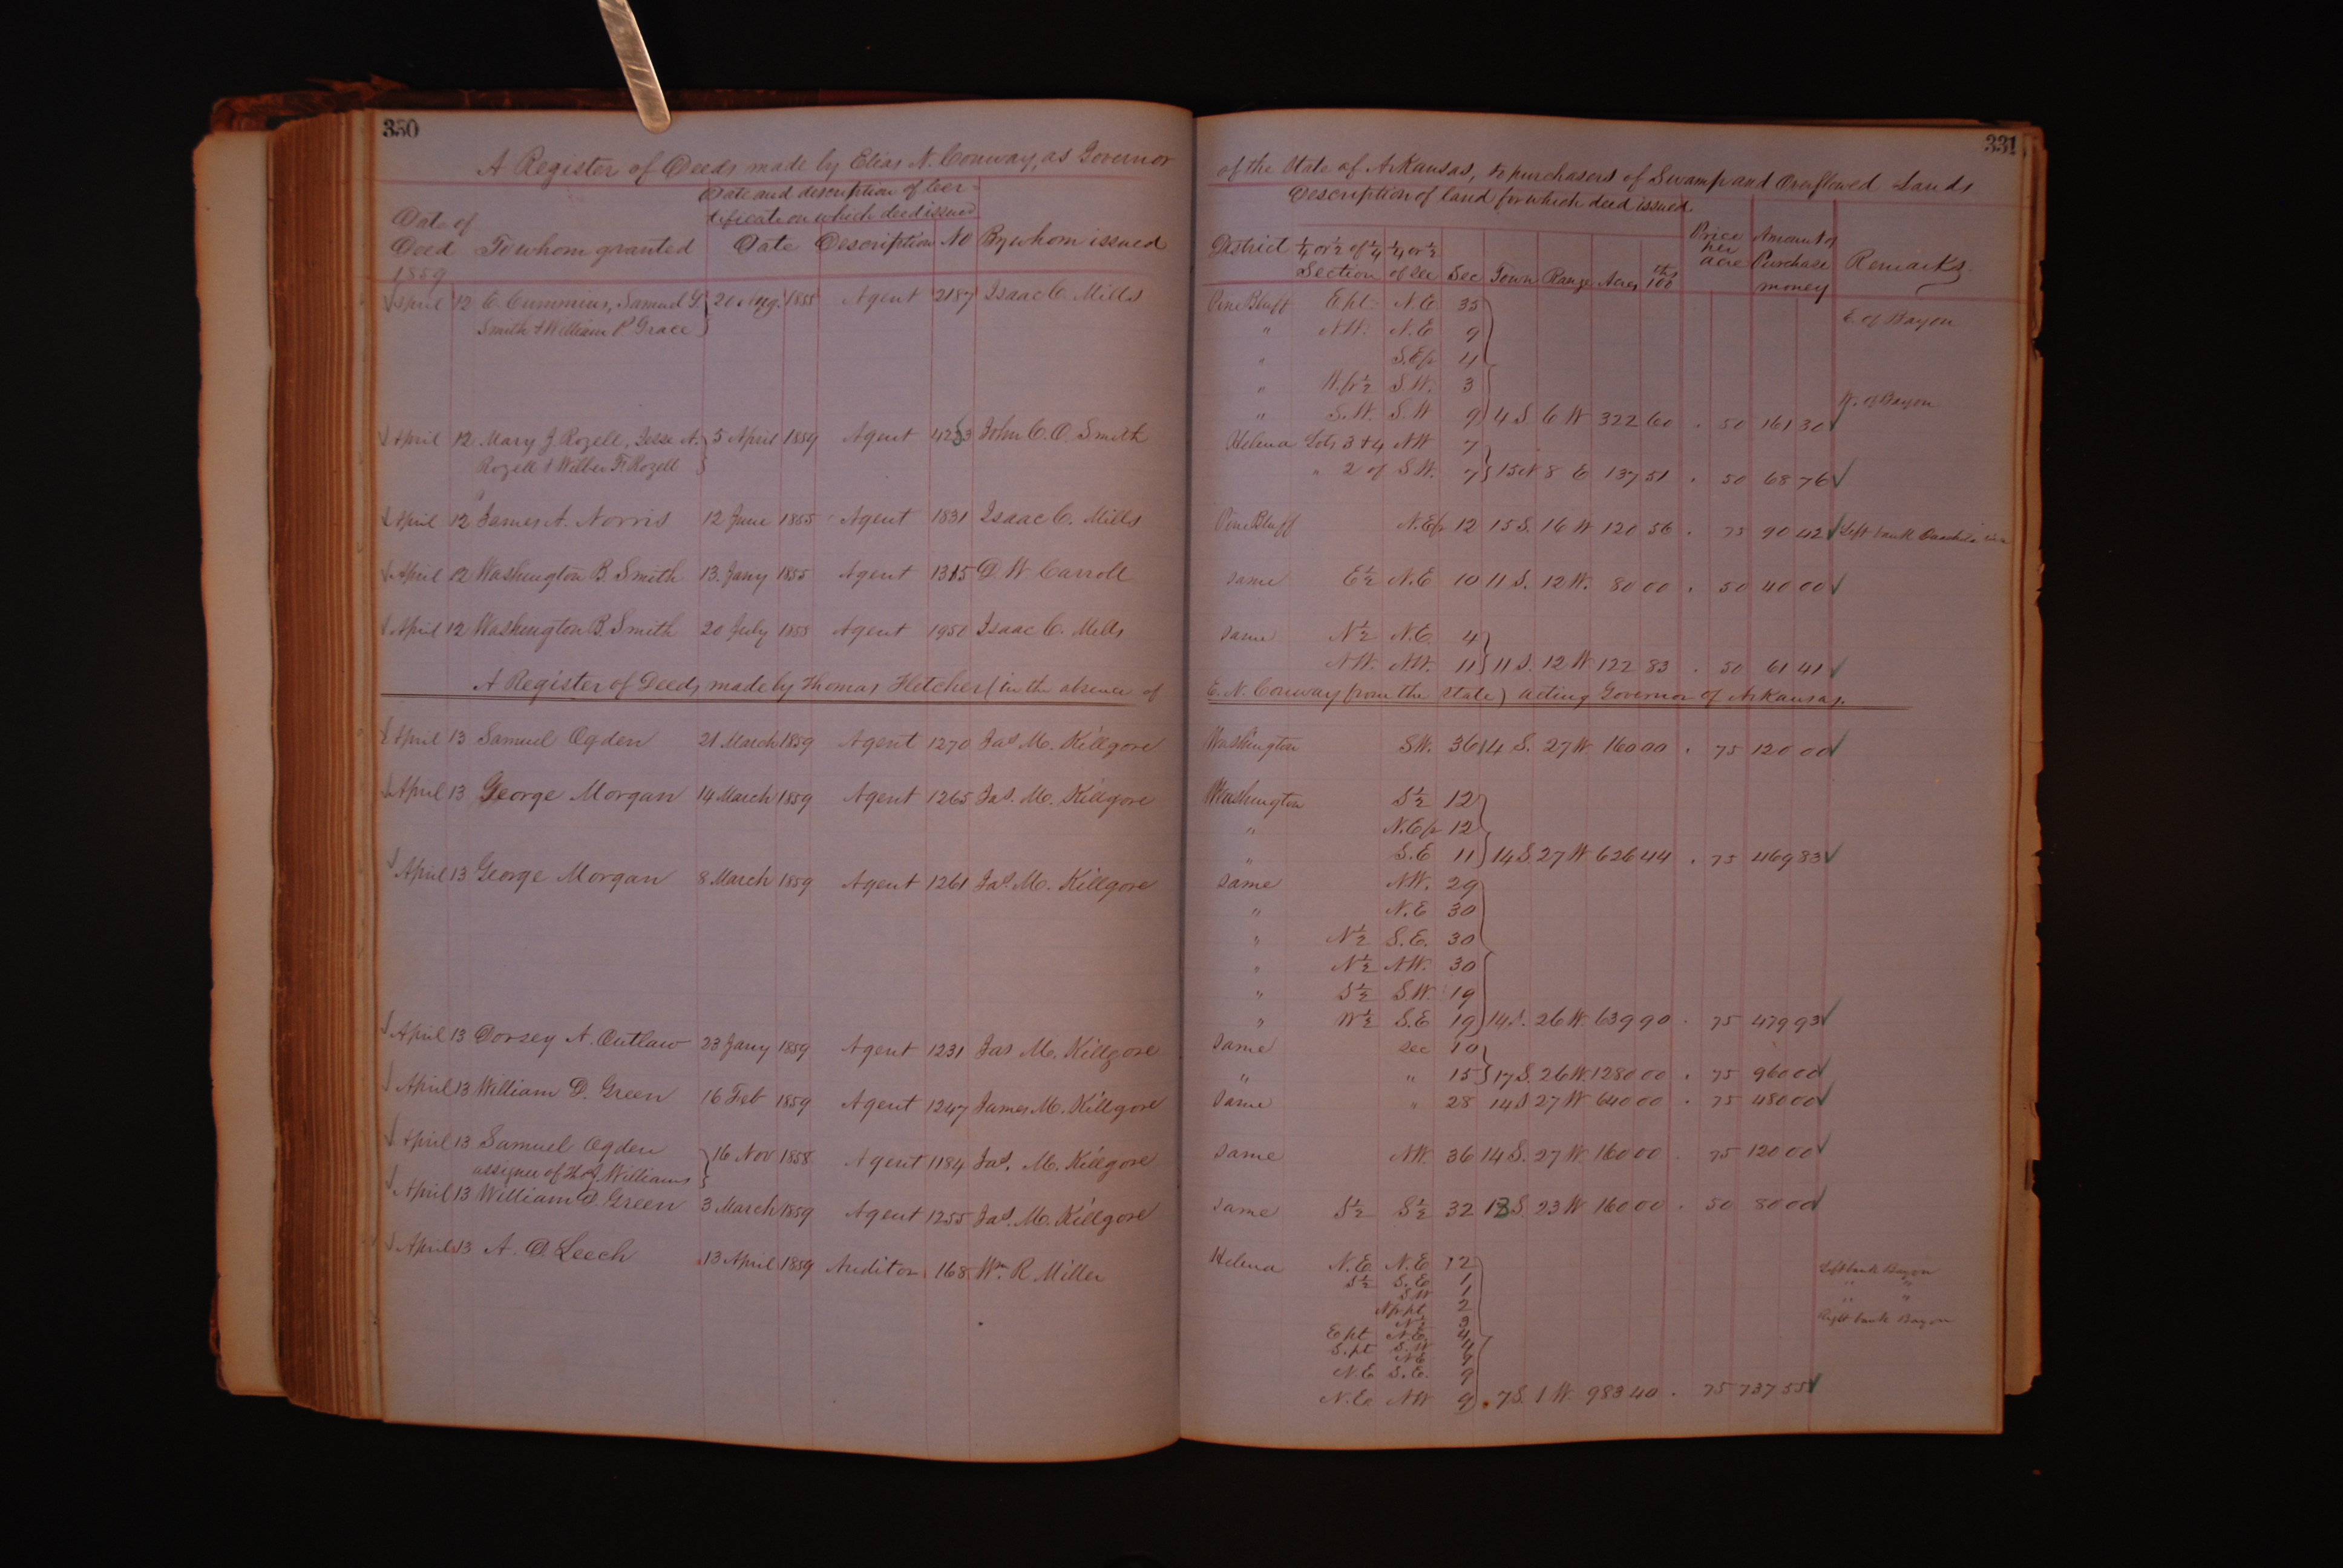 330
A Register of Deeds made by Elias N. Conway, as Governor
Date and description of Cer-
tificate on which deed issued
Date of
Deed To whom granted Date Description No By whom issued
1859
April 12 C. Cummins, Samuel G. 20 Aug. 1855 Agent 2187 Isaac C. Mills
Smith & William P. Grace
April 12 Mary J. Rozell, Jesse A. 5 April 1859 Agent 4253 John C. O. Smith
Rozell & Wilber F. Rozell
April 12 James A. Norris 12 June 1855 Agent 1831 Isaac C. Mills
April 12 Washington B. Smith 13. Jany 1855 Agent 1315 D. W. Carroll
April 12 Washington B. Smith 20 July 1855 Agent 1950 Isaac C. Mills
A Register of Deeds made by Thomas Fletcher (in the absence of
April 13 Samuel Ogden 21 March 1859 Agent 1270 Jas M. Killgore
April 13 George Morgan 14 March 1859 Agent 1265 Jas. M. Killgore
April 13 George Morgan 8 March 1859 Agent 1261 Jas. M. Killgore
April 13 Dorsey A. Outlaw 23 Jany 1859 Agent 1231 Jas M. Killgore
April 13 William D. Green 16 Feb 1859 Agent 1247 James M. Killgore
April 13 Samuel Ogden 16 Nov 1858 Agent 1184 Jas. M. Killgore
assignee of Thos J. Williams
April 13 William D. Green 3 March 1859 Agent 1255 Jas. M. Killgore
April 13 A. D. Leech 13 April 1859 Auditor 168 Wm. R Miller
331
of the State of Arkansas, to purchasers of Swamp and Overflowed Lands
Description of land for which deed issued.
District ¼ or ½ of ¼ Section ¼ or ½ of Sec Sec Town Range Acres 100ths Price per acre Amount of Purchase money Remarks
Pine Bluff E. pt. N.E. 35 E. of Bayou
" N.W. N.E 9
" S.E fr 4
" W. fr ½ S.W. 3 W. of Bayou
" S.W. S.W 9 4 S. 6 W 322 60 . 50 161 30
Helena Lots 3 & 4 NW 7
" 2 of S.W. 7 15 N 8 E 137 51 . 50 68 76
Pine Bluff N.E fr 12 15 S. 16 W 120 56 . 75 90 42 Left bank Ouachita
same E ½ N.E 10 11 S. 12 W. 80 00 . 50 40 00
same N ½ N.E. 4
N.W. N.W. 11 11 S. 12 W 122 83 . 50 61 41
E. N. Conway from the State) acting Governor of Arkansas.
Washington S.W. 36 14 S. 27 W 160 00 . 75 120 00
Washington S ½ 12
" N.E fr 12
" S.E 11 14 S. 27 W 626 44 . 75 469 83
same N.W. 29
" N.E 30
" N ½ S.E. 30
" N ½ N.W. 30
" S ½ S.W. 19
" W ½ S.E 19 14 S. 26 W 639 90 . 75 479 93
same sec 10
" " 15 17 S. 26 W. 1280 00 . 75 960 00
same " 28 14 S 27 W 640 00 . 75 480 00
same N.W. 36 14 S. 27 W 160 00 . 75 120 00
same S ½ S ½ 32 13 S. 23 W 160 00 . 50 80 00
Helena N.E N.E 12 Left bank Bayou
S ½ S.E 1 " "
S.W 1 " "
N fr pt 2 Right bank Bayou
N ½ 3
E pt N.E. 4
S. pt S.W 4
N.E 9
N.E S.E. 9
N.E NW 9 7 S. 1 W. 983 40 . 75 737 55